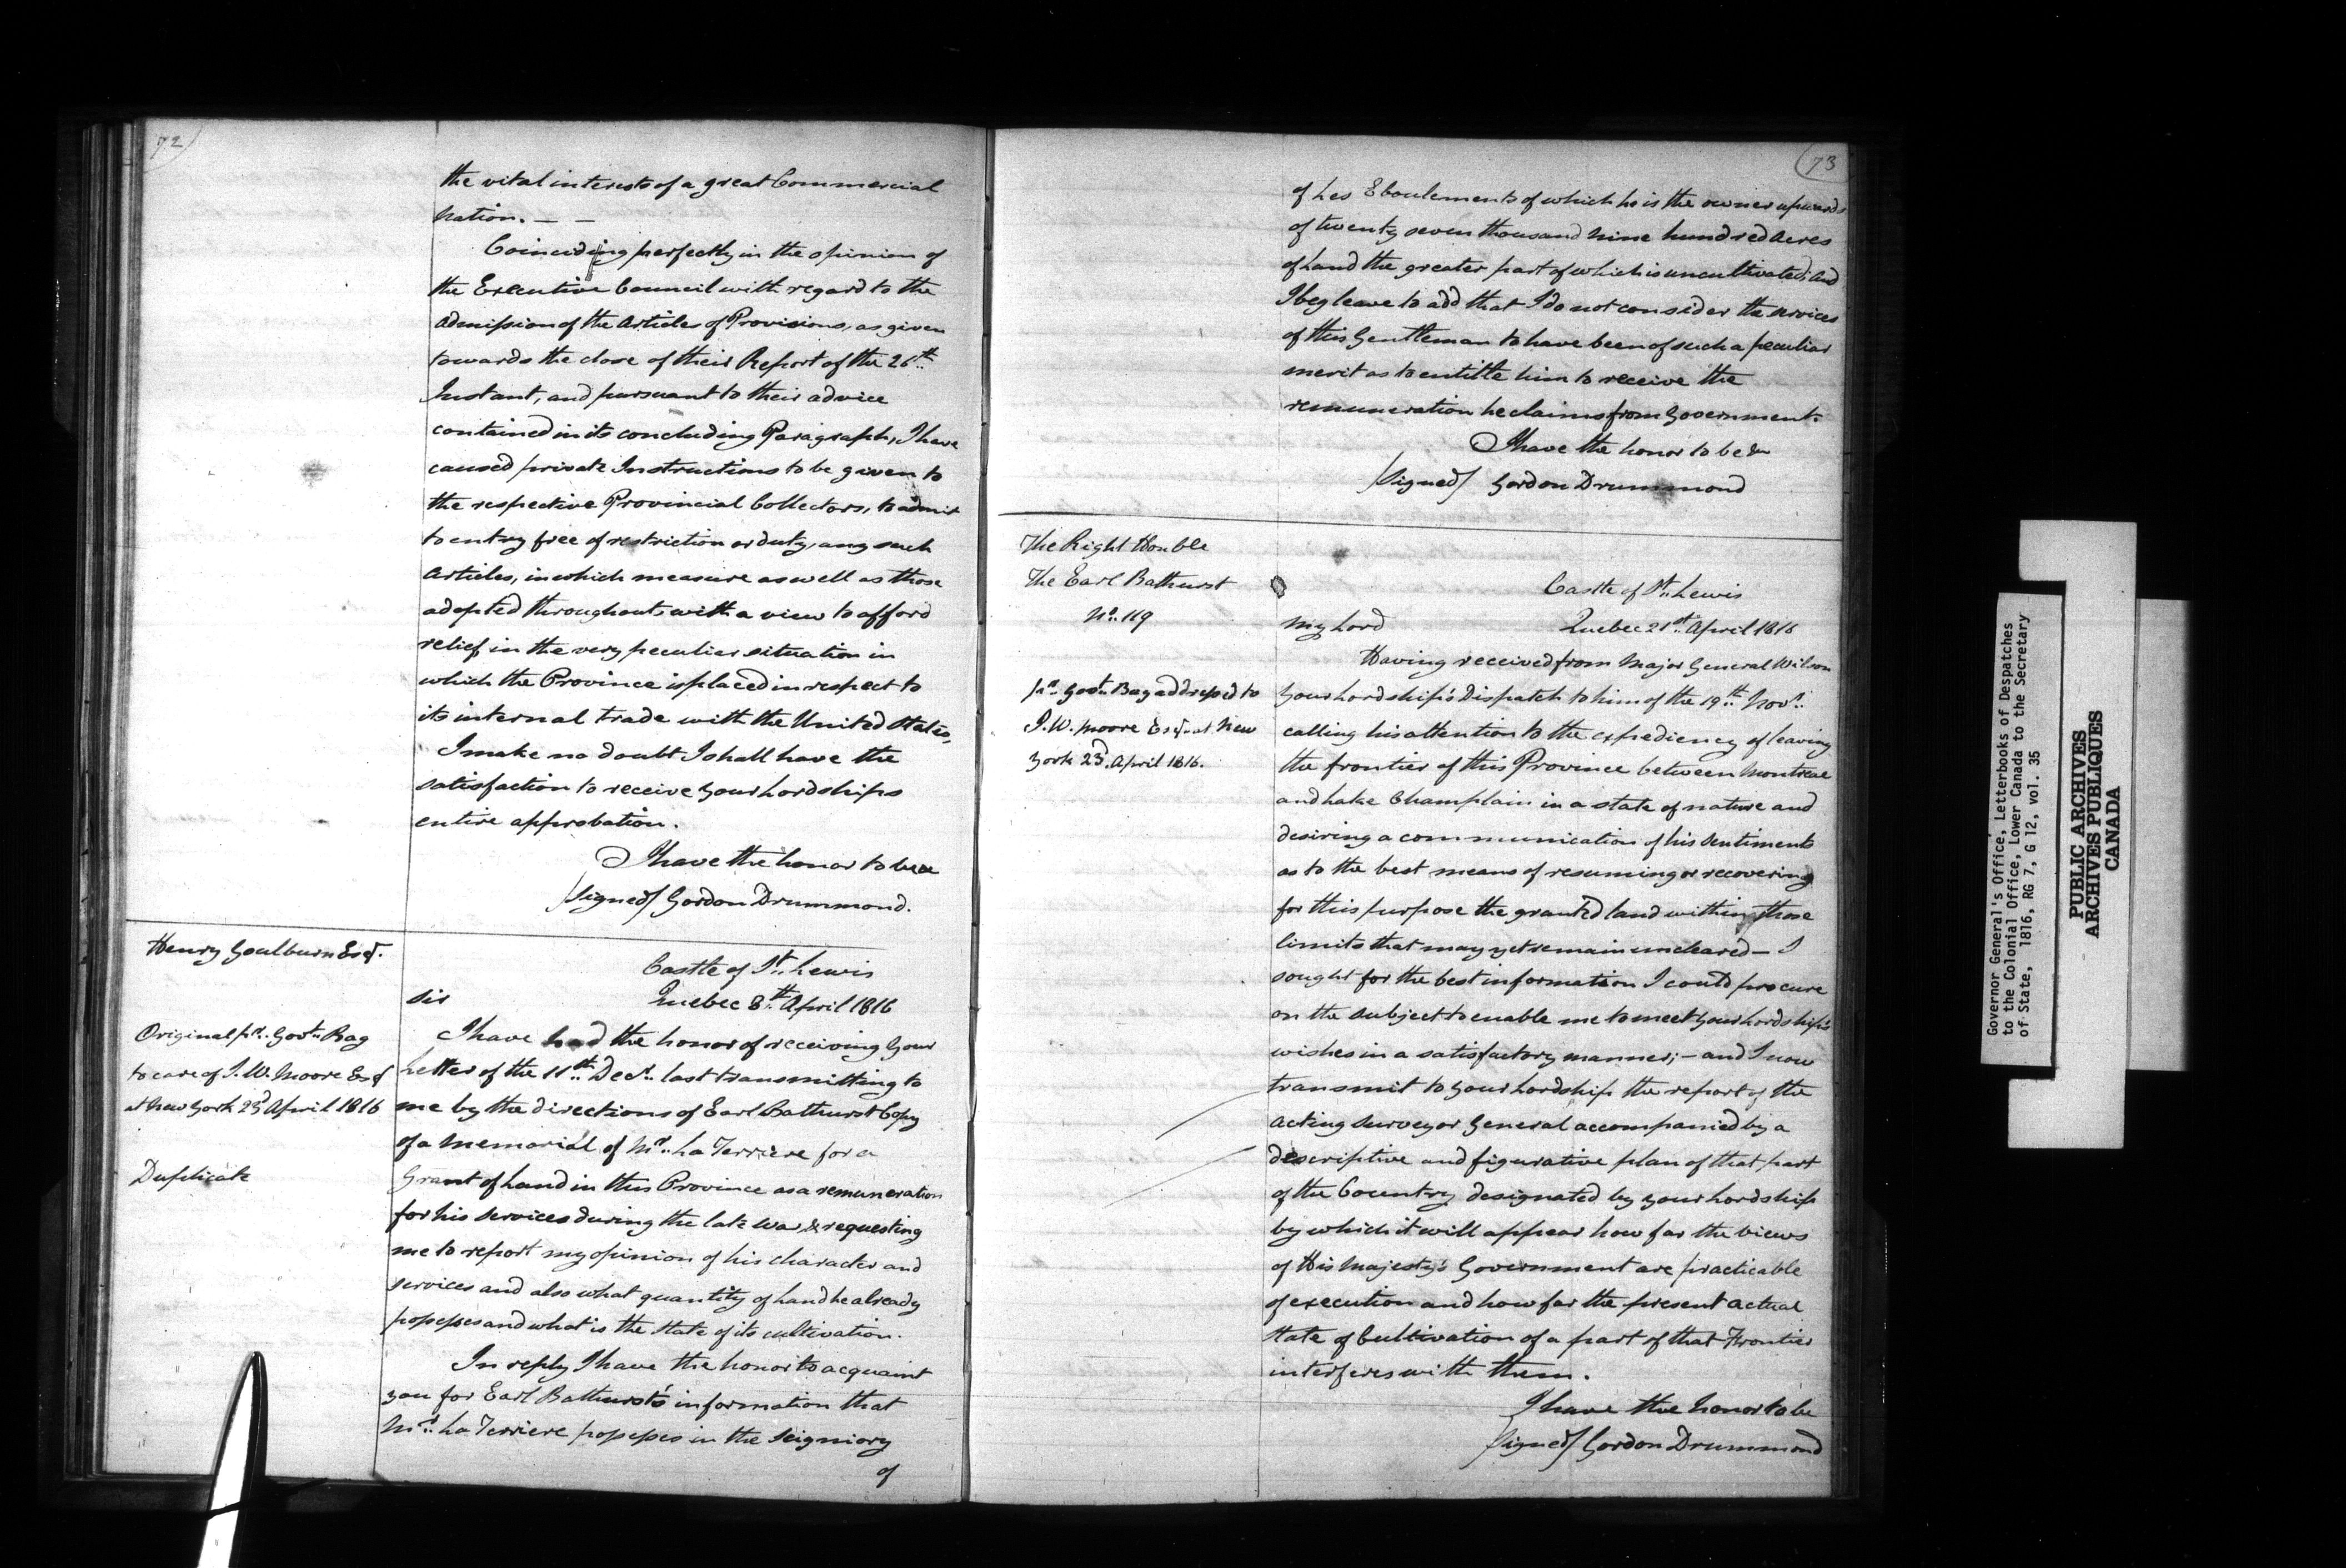 72
the vital interests of a great Commercial
Nation. — —
Coinciding perfectly in the opinion of
the Executive Council with regard to the
admission of the Articles of Provisions, as given
towards the close of their Report of the 26th
Instant, and pursuant to their advice
contained in its concluding Paragraph, I have
caused private Instructions to be given to
the respective Provincial Collectors, to admit
to entry free of restriction or duty, any such
Articles, in which measure as well as those
adopted throughout, with a view to afford
relief, in the very peculiar situation in
which the Province is placed in respect to
its internal trade with the United States,
I make no doubt I shall have the
satisfaction to receive your Lordships
entire approbation.
I have the honor to be &
/Signed/ Gordon Drummond.
Henry Goulburn Esqr.
Castle of St. Lewis
Sir
Quebec 8th April 1816
Original pr. Govt. Bag
to care of I. W. Moore Esq
at New York 23d April 1816
Duplicate
I have had the honor of receiving your
Letter of the 11th Decr. last transmitting to
me by the directions of Earl Bathurst Copy
of a Memorial of Mr. La Terriere for a
Grant of Land in this Province as a remuneration
for his services during the late War & requesting
me to report my opinion of his character and
services and also what quantity of Land he already
possesses and what is the state of its cultivation.
In reply I have the honor to acquaint
you for Earl Bathurst's information that
Mr. La Terriere possesses in the Seigniory
of
73
of Les Eboulements of which he is the owner upwards
of twenty seven thousand nine hundred Acres
of Land the greater part of which is uncultivated; And
I beg leave to add that I do not consider the services
of this Gentleman to have been of such a peculiar
merit as to entitle him to receive the
remuneration he claims from Government.
I have the honor to be &c
/Signed/ Gordon Drummond
The Right Honble
The Earl Bathurst
No. 119
Castle of St. Lewis
My Lord
Quebec 21st April 1816
pr. Govt. Bag addressed to
I. W. Moore Esqr at New
York 23d. April 1816.
Having received from Major General Wilson
Your Lordship's Dispatch to him of the 19th Novr.
calling his attention to the expediency of leaving
the frontier of this Province between Montreal
and Lake Champlain in a state of nature and
desiring a communication of his Sentiments
as to the best means of resuming or recovering
for this purpose the granted land within those
limits that may yet remain uncleared — I
sought for the best information I could procure
on the subject to enable me to meet your Lordship's
wishes in a satisfactory manner; — and I now
transmit to your Lordship the report of the
Acting Surveyor General accompanied by a
descriptive and figurative plan of that part
of the Country designated by your Lordship
by which it will appear how far the views
of His Majesty's Government are practicable
of execution and how far the present actual
state of Cultivation of a part of that Frontier
interferes with them.
I have the honor to be
/Signed/ Gordon Drummond
Governor General's Office, Letterbooks of Despatches
to the Colonial Office, Lower Canada to the Secretary
of State, 1816, RG 7, G 12, vol. 35
PUBLIC ARCHIVES
ARCHIVES PUBLIQUES
CANADA